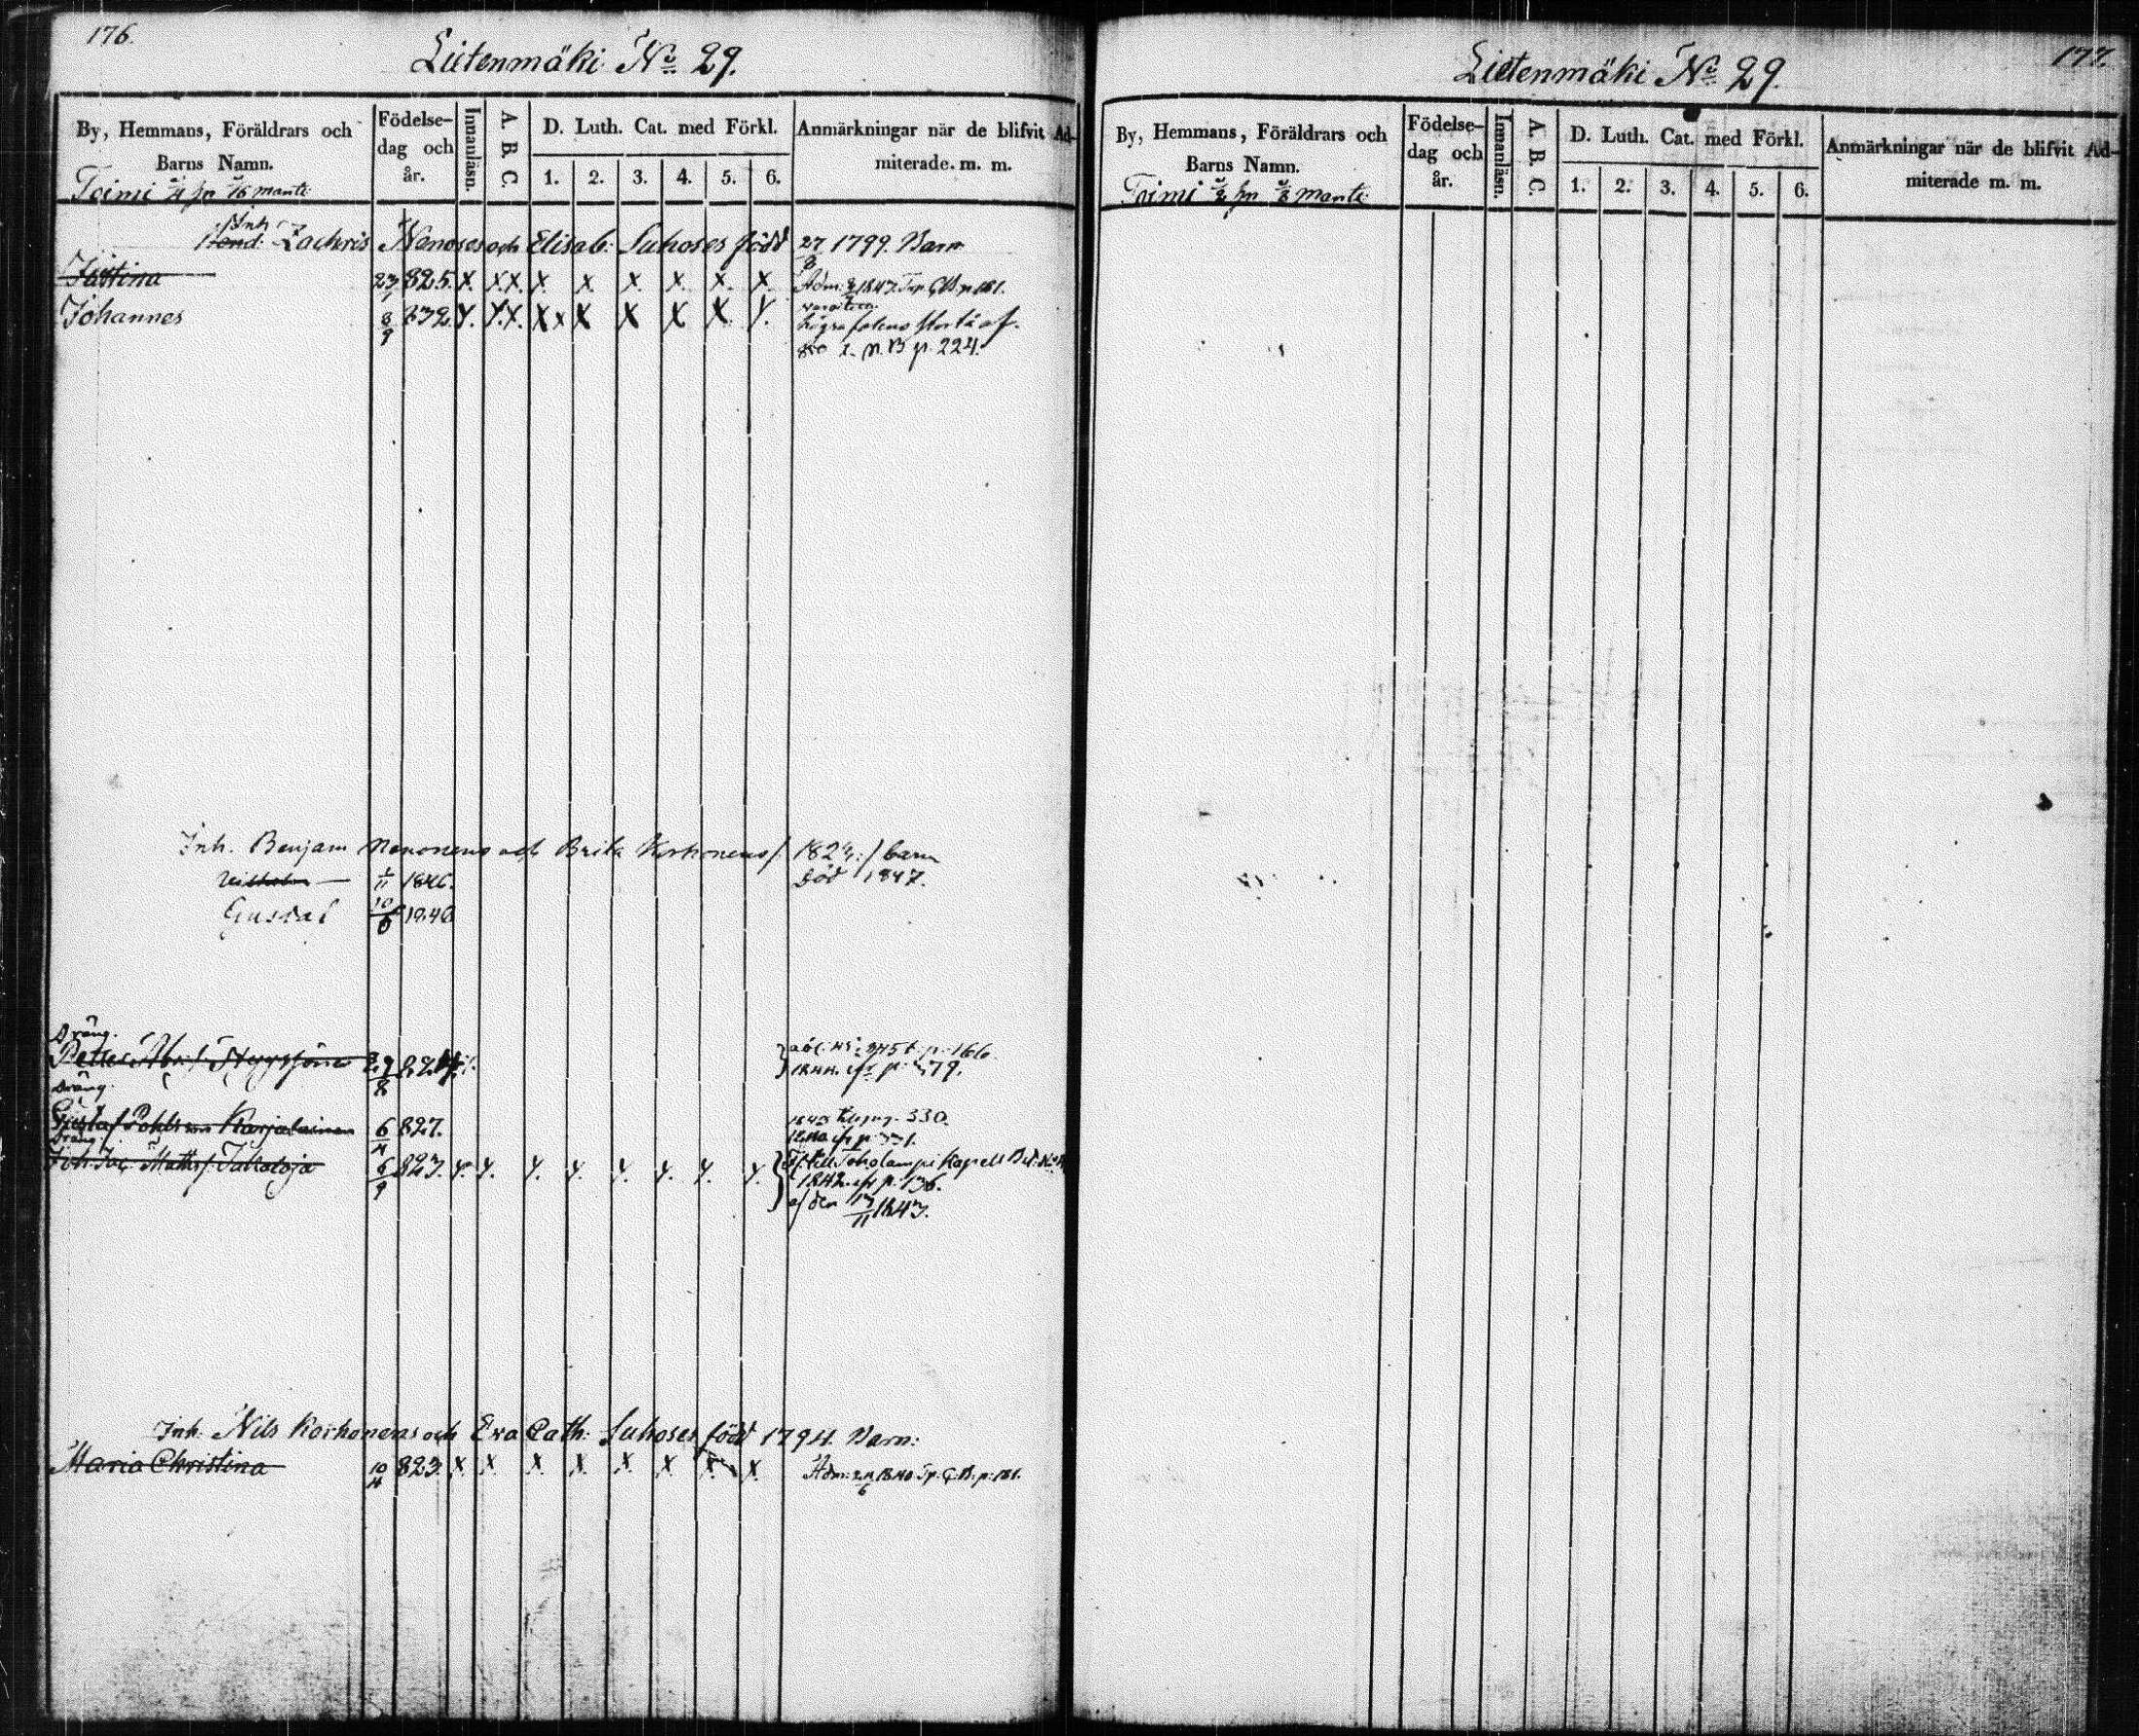 176.
Lietenmäki No 29.
By, Hemmans, Föräldrars och
Barns Namn.
Födelse-
dag och
år.
Innanläsn.
A. B. C.
D. Luth. Cat. med Förkl.
1. 2. 3. 4. 5. 6.
Anmärkningar när de blifvit Ad-
miterade. m. m.
Toimi mantl:
Inh
Bond: Zachris Nenoses och Elisab: Suhoses född 27/8 1799. Barn
Justina 23 825. X. X.X. X. X. X. X. X. X. Adm: 1847. p. 181.
Johannes 8/9 832. Y. Y.X. X x X X X X. Y.
högra
850 p. 224.
Inh. Benjam Nenonens och Brita Korhonens /: 1824 :/ barn
Wilhelm 1/11 1846. död 1847.
Gustaf 10/6 1848
Dräng.
Petter 29/8 p. 166
1844. p. 79.
Dräng.
Gustaf Pohlsson Karjalainen 6/4 827. 1843 330.
Dräng
Joh. Jac. Matts: Juhaloja 6/9 823. Y. Y. Y. Y. Y. Y. Y. Y. till Toholampi Kapell
1842 p. 136.
af den 13/11 1843.
Inh. Nils Korhonens och Eva Cath: Suhoses född 1794. Barn:
Maria Christina 10/4 823. X. X X. X. X X X. X. Adm: 24/6 1840 p. 181.
177.
Lietenmäki No 29.
By, Hemmans, Föräldrars och
Barns Namn.
Födelse-
dag och
år.
Innanläsn.
A. B. C.
D. Luth. Cat. med Förkl.
1. 2. 3. 4. 5. 6.
Anmärkningar när de blifvit Ad-
miterade m. m.
Toimi mantl: